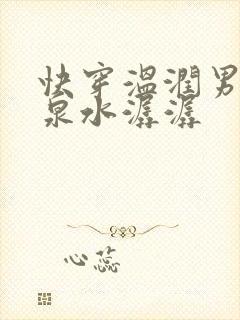 快穿温润男
泉水潺潺
心蕊